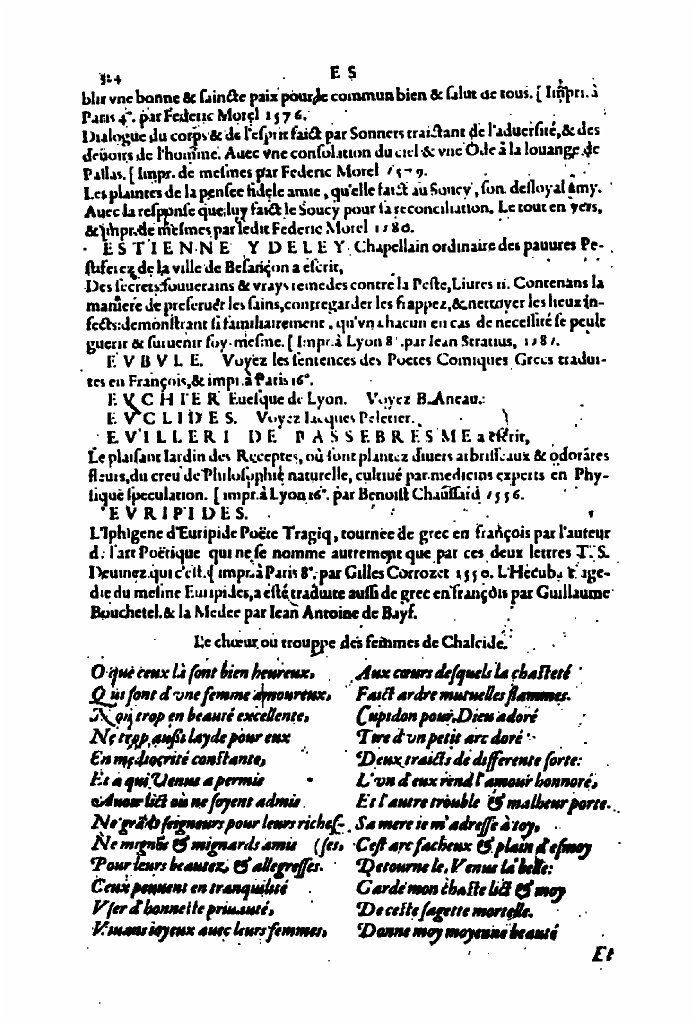 324
E S
blir vne bonne & saincte paix pour le commun bien & salut de tous. [ Impri. à
Paris 4°. par Federic Morel 1576.
Dialogue du corps & de l'esprit faict par Sonnets traictant de l'aduersité, & des
deuoirs de l'homme. Auec vne consolation du ciel & vne Ode à la louange de
Pallas. [ Impr. de mesmes par Federic Morel 1579.
Les plaintes de la pensee fidele amie, qu'elle faict au Soucy, son desloyal amy.
Auec la response que luy faict le Soucy pour sa reconciliation. Le tout en vers,
& impr. de mesmes par ledit Federic Morel 1580.
ESTIENNE YDELEY Chapellain ordinaire des pauures Pe-
stiferez de la ville de Besançon a escrit,
Des secrets souuerains & vrays remedes contre la Peste, Liures ii. Contenans la
maniere de preseruer les sains, contregarder les frappez, & nettoyer les lieux in-
fects: demonstrant si familiairement, qu'vn chacun en cas de necessité se peult
guerir & suruenir soy-mesme. [ Impr. à Lyon 8°. par Iean Stratius, 1581.
EVBVLE. Voyez les sentences des Poetes Comiques Grecs tradui-
tes en François, & impr. à Paris 16°.
EVCHIER Euesque de Lyon. Voyez B. Aneau.
EVCLIDES. Voyez Iacques Peletier.
EVILLERI DE PASSEBRESME a escrit,
Le plaisant Iardin des Receptes, où sont plantez diuers arbrisseaux & odorātes
fleurs, du creu de Philosophie naturelle, cultiué par medicins experts en Phy-
sique speculation. [ impr. à Lyon 16°. par Benoist Chaussard 1556.
EVRIPIDES.
L'Iphigene d'Euripide Poëte Tragiq, tournee de grec en françois par l'auteur
de l'art Poëtique qui ne se nomme autrement que par ces deux lettres T. S.
Deuinez qui c'est. [ impr. à Paris 8°. par Gilles Corrozet 1550. L'Hecuba Trage-
die du mesme Euripides, a esté traduite aussi de grec en françois par Guillaume
Bouchetel. & la Medee par Iean Antoine de Bayf.
Le chœur ou trouppe des femmes de Chalcide.
O que ceux là sont bien heureux,
Qui sont d'vne femme amoureux,
Non trop en beauté excellente,
Ne trop aussi layde pour eux
En mediocrité constante,
Et a qui Venus a permis
Auoir lict où ne soyent admis
Ne grāds seigneurs pour leurs riches-
Ne mignōs & mignards amis (ses,
Pour leurs beautez, & allegresses.
Ceux peuuent en tranquilité
Vser d'honneste priuauté,
Viuans ioyeux auec leurs femmes,
Aux cœurs desquels la chasteté
Faict ardre mutuelles flammes.
Cupidon pour Dieu adoré
Tire d'vn petit arc doré
Deux traicts de differente sorte:
L'vn d'eux rend l'amour honnoré,
Et l'autre trouble & malheur porte.
Sa mere ie m'adresse à toy,
C'est arc facheux & plain d'esmoy
Detourne le, Venus la belle:
Garde mon chaste lict & moy
De ceste sagette mortelle.
Donne moy moyenne beauté
Et